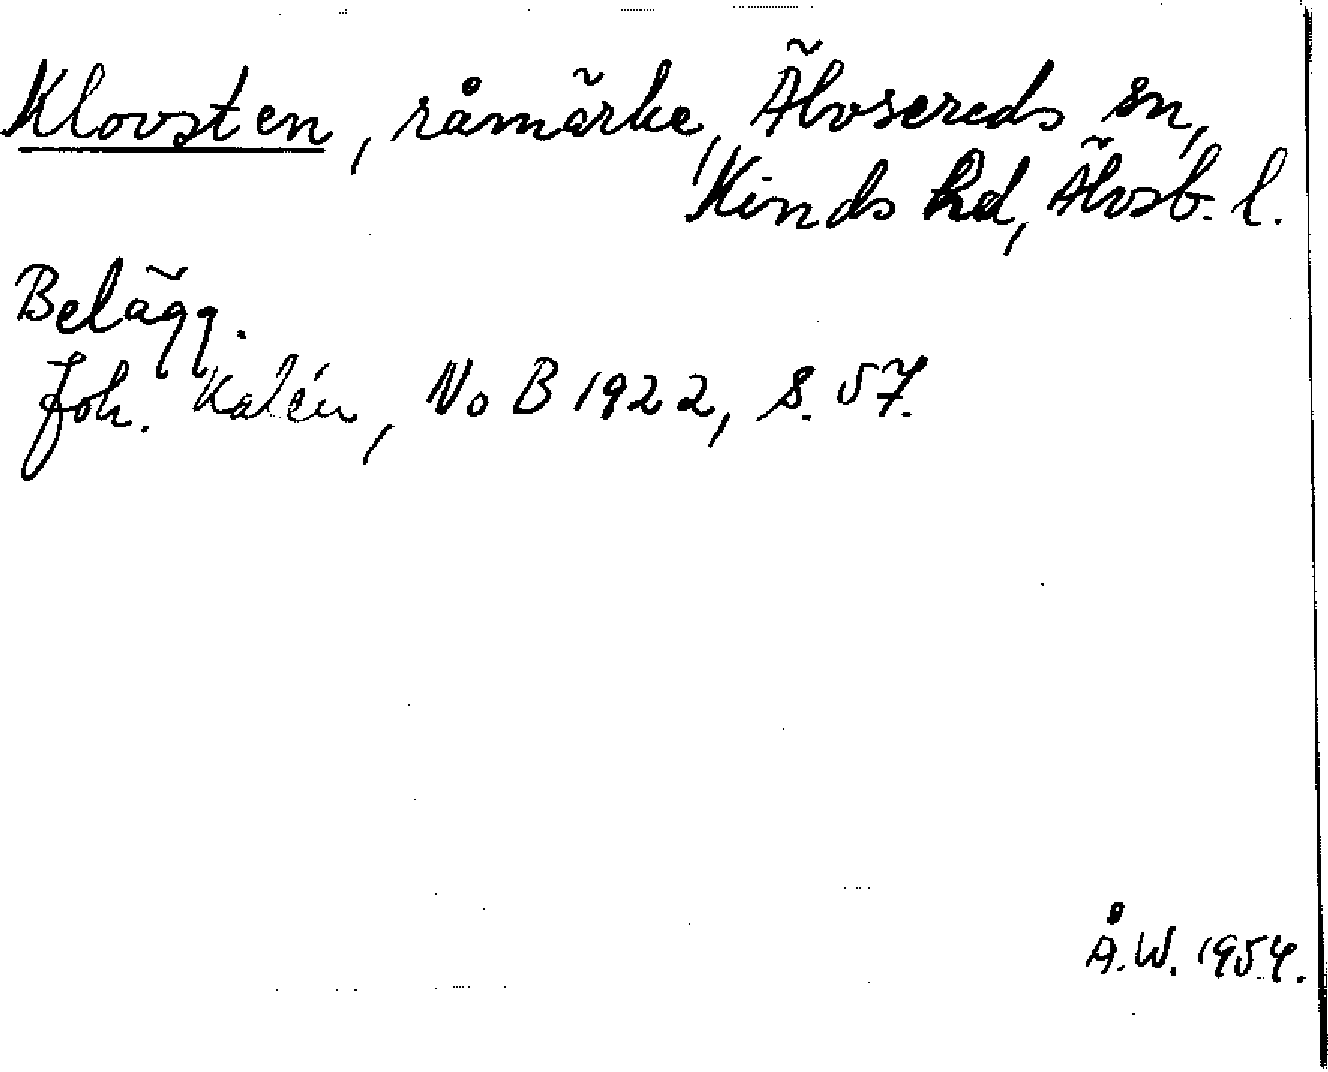 Klovsten, råmärke, Älvsereds sn,
Kinds hd, Älvsb. l.
Belägg.
Joh. Kalén, NoB 1922, s. 57.
Å.W. 1954.